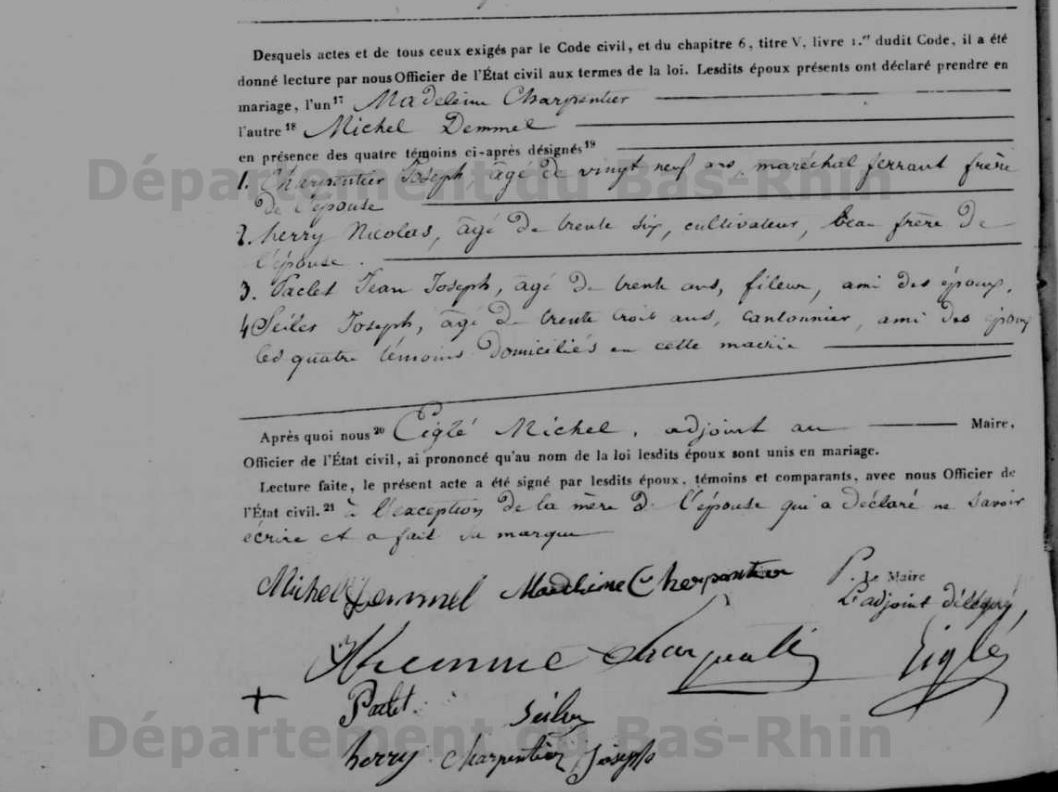 Desquels actes et de tous ceux exigés par le Code civil, et du chapitre 6, titre V, livre 1.er dudit Code, il a été
donné lecture par nous Officier de l'État civil aux termes de la loi. Lesdits époux présents ont déclaré prendre en
mariage, l'un 17 Madeleine Charpentier
l'autre 18 Michel Demmel
en présence des quatre témoins ci-après désignés 19
Département du Bas-Rhin
1. Charpentier Joseph, âgé de vingt neuf ans, maréchal ferrant frère
de l'épouse
2. herry Nicolas, âgé de trente six, cultivateur, beau frère de
l'épouse.
3. Paclet Jean Joseph, âgé de trente ans, fileur, ami des époux.
4 Seiler Joseph, âgé de trente trois ans, cantonnier, ami des époux
les quatre témoins domiciliés en cette mairie
Après quoi nous 20 Eiglé Michel, adjoint au Maire,
Officier de l'État civil, ai prononcé qu'au nom de la loi lesdits époux sont unis en mariage.
Lecture faite, le présent acte a été signé par lesdits époux, témoins et comparants, avec nous Officier de
l'État civil. 21 à l'exception de la mère de l'épouse qui a déclaré ne savoir
écrire et a fait sa marque
Michel Demmel Madeleine Charpentier P. Le Maire
L'adjoint délégué,
Charpentier Eiglé
+ Paclet. Seiler
Département du Bas-Rhin
herry Charpentier Joseph